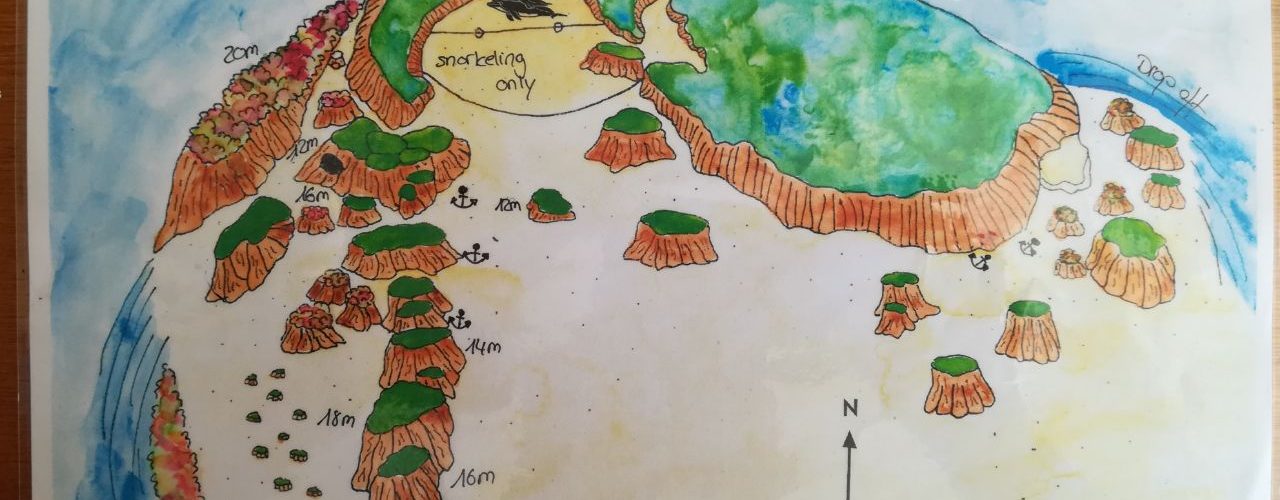 20m
snorkeling
only
Drop off
12m
16m
12m
14m
18m
16m
N